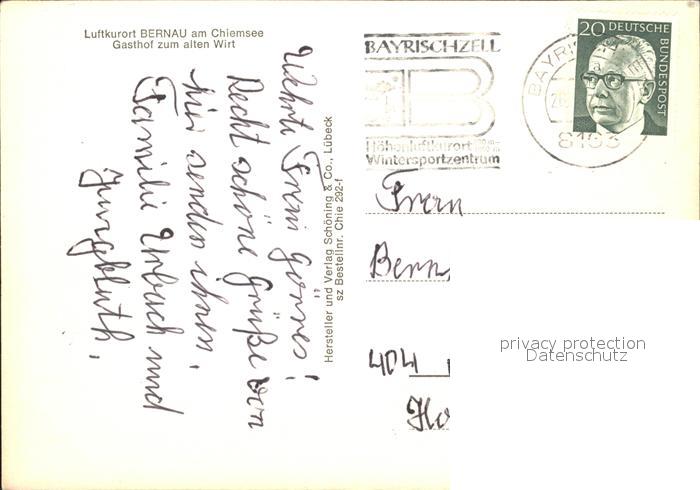 Luftkurort BERNAU am Chiemsee
Gasthof zum alten Wirt
Hersteller und Verlag Schöning & Co., Lübeck
sz Bestellnr. Chie 292-f
Frau Görres!
Recht schöne Grüße von
hier senden ihnen,
Familie Urbach und
Jungbluth,
BAYRISCHZELL
B
Höhenluftkurort
Wintersportzentrum
BAYRIS
8163
20 DEUTSCHE
BUNDESPOST
404
privacy protection
Datenschutz